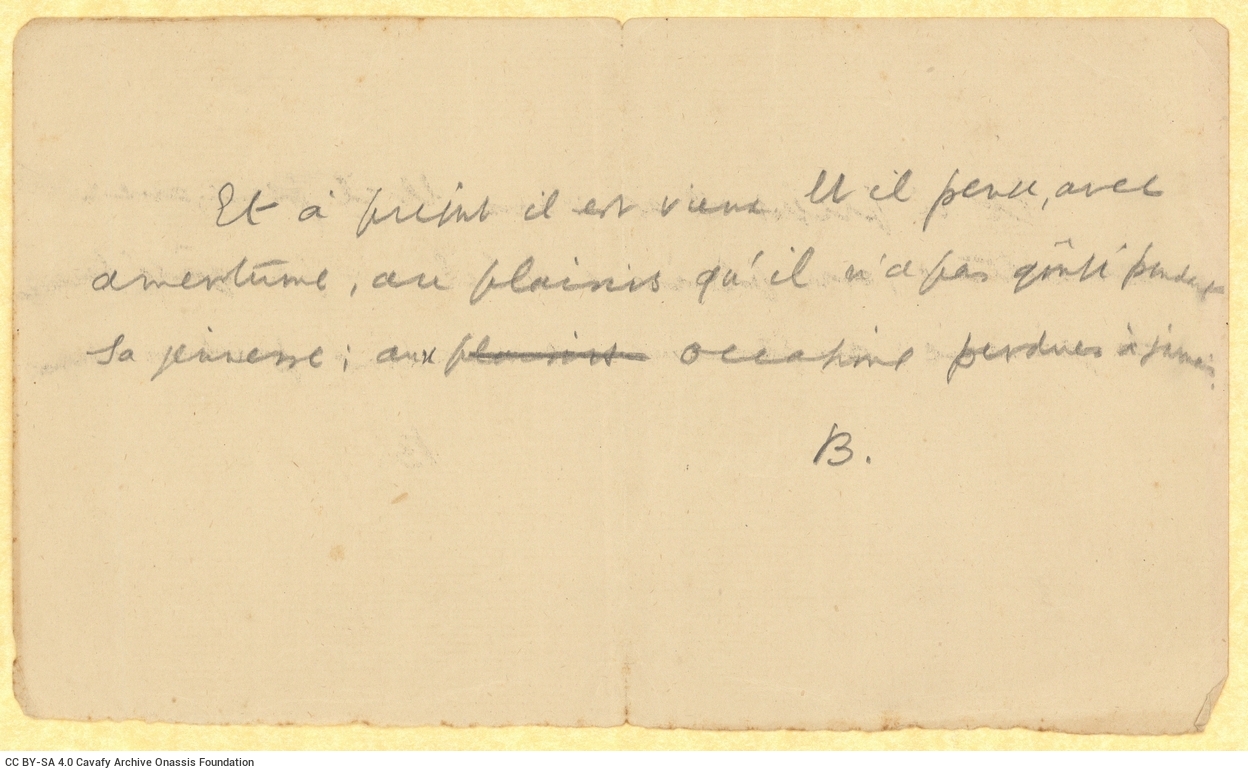 Et à présent il est vieux Et il pense, avec
amertume, aux plaisirs qu'il n'a pas goûté pendant
sa jeunesse; aux plaisirs occasions perdues à jamais.
B.
CC BY-SA 4.0 Cavafy Archive Onassis Foundation